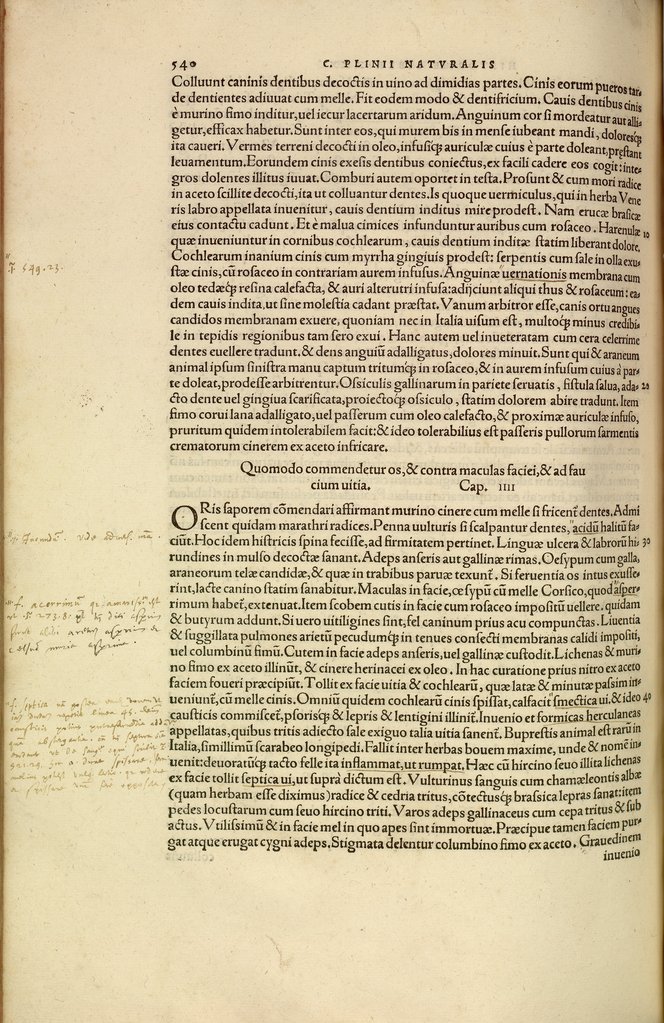 540 C. PLINII NATVRALIS
Colluunt caninis dentibus decoctis in uino ad dimidias partes. Cinis eorum pueros tar
de dentientes adiuuat cum melle. Fit eodem modo & dentifricium. Cauis dentibus cinis
è murino fimo inditur, uel iecur lacertarum aridum. Anguinum cor si mordeatur aut alli
getur, efficax habetur. Sunt inter eos, qui murem bis in mense iubeant mandi, doloresq́;
ita caueri. Vermes terreni decocti in oleo, infusiq́; auriculæ cuius è parte doleant, præstant
leuamentum. Eorundem cinis exesis dentibus coniectus, ex facili cadere eos cogit: inte
gros dolentes illitus iuuat. Comburi autem oportet in testa. Prosunt & cum mori radice
in aceto scillite decocti, ita ut colluantur dentes. Is quoque uermiculus, qui in herba Vene
ris labro appellata inuenitur, cauis dentium inditus mire prodest. Nam erucæ brasicæ
eius contactu cadunt. Et è malua cimices infunduntur auribus cum rosaceo. Harenulæ 10
quæ inueniuntur in cornibus cochlearum, cauis dentium inditæ statim liberant dolore.
Cochlearum inanium cinis cum myrrha gingiuis prodest: serpentis cum sale in olla exu
stæ cinis, cū rosaceo in contrariam aurem infusus. Anguinæ uernationis membrana cum
oleo tedæq́; resina calefacta, & auri alterutri infusa: adijciunt aliqui thus & rosaceum: ea
dem cauis indita, ut sine molestia cadant præstat. Vanum arbitror esse, canis ortu angues
candidos membranam exuere, quoniam nec in Italia uisum est, multoq́; minus credibi
le in tepidis regionibus tam sero exui. Hanc autem uel inueteratam cum cera celerrime
dentes euellere tradunt. & dens anguiū adalligatus, dolores minuit. Sunt qui & araneum
animal ipsum sinistra manu captum tritumq́; in rosaceo, & in aurem infusum cuius à par
te doleat, prodesse arbitrentur. Ossiculis gallinarum in pariete seruatis, fistula salua, ada- 20
cto dente uel gingiua scarificata, proiectoq́; ossiculo, statim dolorem abire tradunt. Item
fimo corui lana adalligato, uel passerum cum oleo calefacto, & proximæ auriculæ infuso,
pruritum quidem intolerabilem facit: & ideo tolerabilius est passeris pullorum sarmentis
crematorum cinerem ex aceto infricare.
Quomodo commendetur os, & contra maculas faciei, & ad fau
cium uitia. Cap. IIII
ORis saporem cōmendari affirmant murino cinere cum melle si fricent̃ dentes. Admi
scent quidam marathri radices. Penna uulturis si scalpantur dentes, acidū halitū fa-
ciūt. Hoc idem histricis spina fecisse, ad firmitatem pertinet. Linguæ ulcera & labrorū hi 30
rundines in mulso decoctæ sanant. Adeps anseris aut gallinæ rimas. Oesypum cum galla,
araneorum telæ candidæ, & quæ in trabibus paruæ texunt̃. Si feruentia os intus exusse-
rint, lacte canino statim sanabitur. Maculas in facie, œsypū cū melle Corsico, quod asper-
rimum habet̃, extenuat. Item scobem cutis in facie cum rosaceo impositū uellere. quidam
& butyrum addunt. Si uero uitiligines sint, fel caninum prius acu compunctas. Liuentia
& suggillata pulmones arietū pecudumq́; in tenues consecti membranas calidi impositi,
uel columbinū fimū. Cutem in facie adeps anseris, uel gallinæ custodit. Lichenas & muri
no fimo ex aceto illinūt, & cinere herinacei ex oleo. In hac curatione prius nitro ex aceto
faciem foueri præcipiūt. Tollit ex facie uitia & cochlearū, quæ latæ & minutæ passim in
ueniunt̃, cū melle cinis. Omniū quidem cochlearū cinis spissat, calfacit smectica ui, & ideo 40
causticis commiscet̃, psorisq́; & lepris & lentigini illinit̃. Inuenio et formicas herculaneas
appellatas, quibus tritis adiecto sale exiguo talia uitia sanent̃. Buprestis animal est rarū in
Italia, simillimū scarabeo longipedi. Fallit inter herbas bouem maxime, unde & nomē in
uenit: deuoratūq́; tacto felle ita inflammat, ut rumpat. Hæc cū hircino seuo illita lichenas
ex facie tollit septica ui, ut suprà dictum est. Vulturinus sanguis cum chamæleontis albæ
(quam herbam esse diximus) radice & cedria tritus, cōtectusq́; brassica lepras sanat: item
pedes locustarum cum seuo hircino triti. Varos adeps gallinaceus cum cepa tritus & sub
actus. Vtilissimū & in facie mel in quo apes sint immortuæ. Præcipue tamen faciem pur-
gat atque erugat cygni adeps. Stigmata delentur columbino fimo ex aceto. Grauedinem
inuenio
549.23.